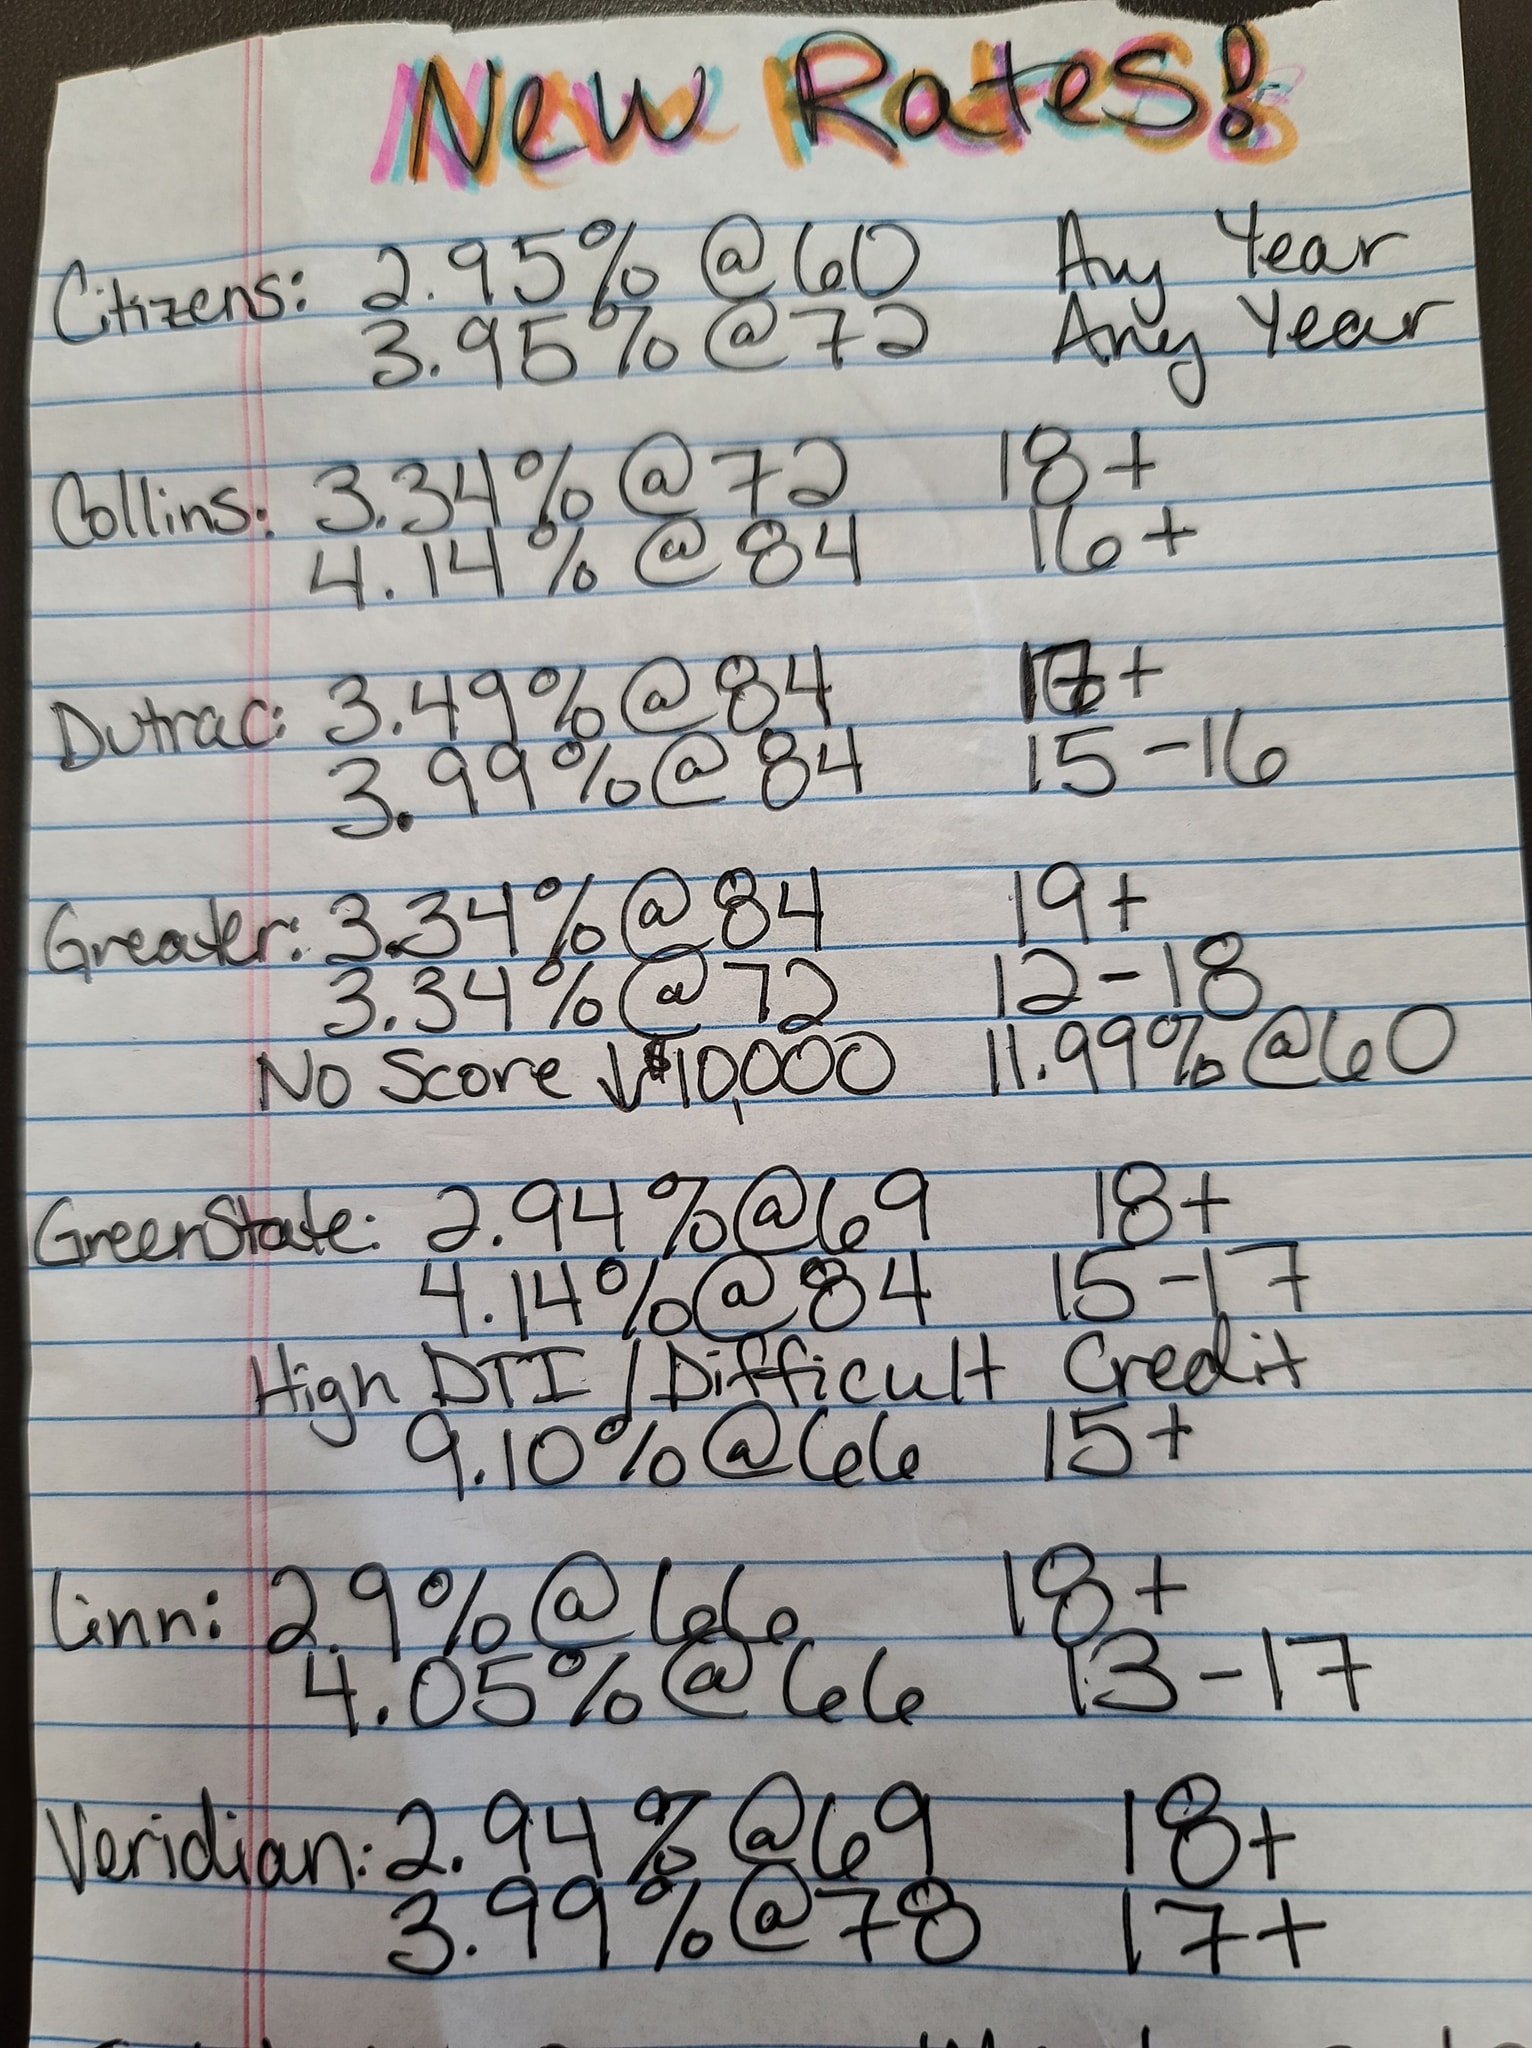 New Rates!
Citizens: 2.95% @ 60 Any Year
3.95% @ 72 Any Year
Collins: 3.34% @ 72 18+
4.14% @ 84 16+
Dutrac: 3.49% @ 84 17+
3.99% @ 84 15-16
Greater: 3.34% @ 84 19+
3.34% @ 72 12-18
No Score ↓ $10,000 11.99% @ 60
GreenState: 2.94% @ 69 18+
4.14% @ 84 15-17
High DTI / Difficult Credit
9.10% @ 66 15+
Linn: 2.9% @ 66 18+
4.05% @ 66 13-17
Veridian: 2.94% @ 69 18+
3.99% @ 78 17+